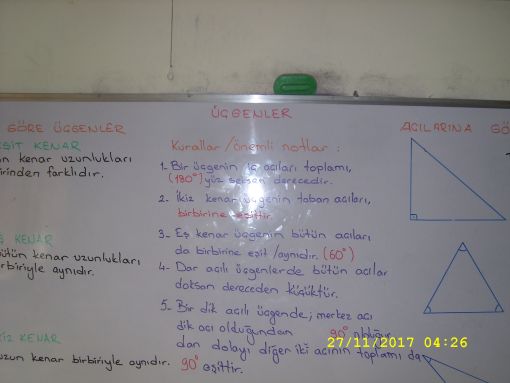 ÜÇGENLER
GÖRE ÜÇGENLER
EŞİT KENAR
kenar uzunlukları
birinden farklıdır.
KENAR
bütün kenar uzunlukları
birbiriyle aynıdır.
KENAR
uzun kenar birbiriyle aynıdır.
Kurallar/önemli notlar:
1- Bir üçgenin iç açıları toplamı,
(180°) yüz seksen derecedir.
2- İkiz kenar üçgenin taban açıları,
birbirine eşittir.
3- Eş kenar üçgenin bütün açıları
da birbirine eşit/aynıdır. (60°)
4- Dar açılı üçgenlerde bütün açılar
doksan dereceden küçüktür.
5- Bir dik açılı üçgende; merkez açı
dik açı olduğundan 90° olduğun
dan dolayı diğer iki açının toplamı da
90° eşittir.
AÇILARINA GÖ
27/11/2017 04:26